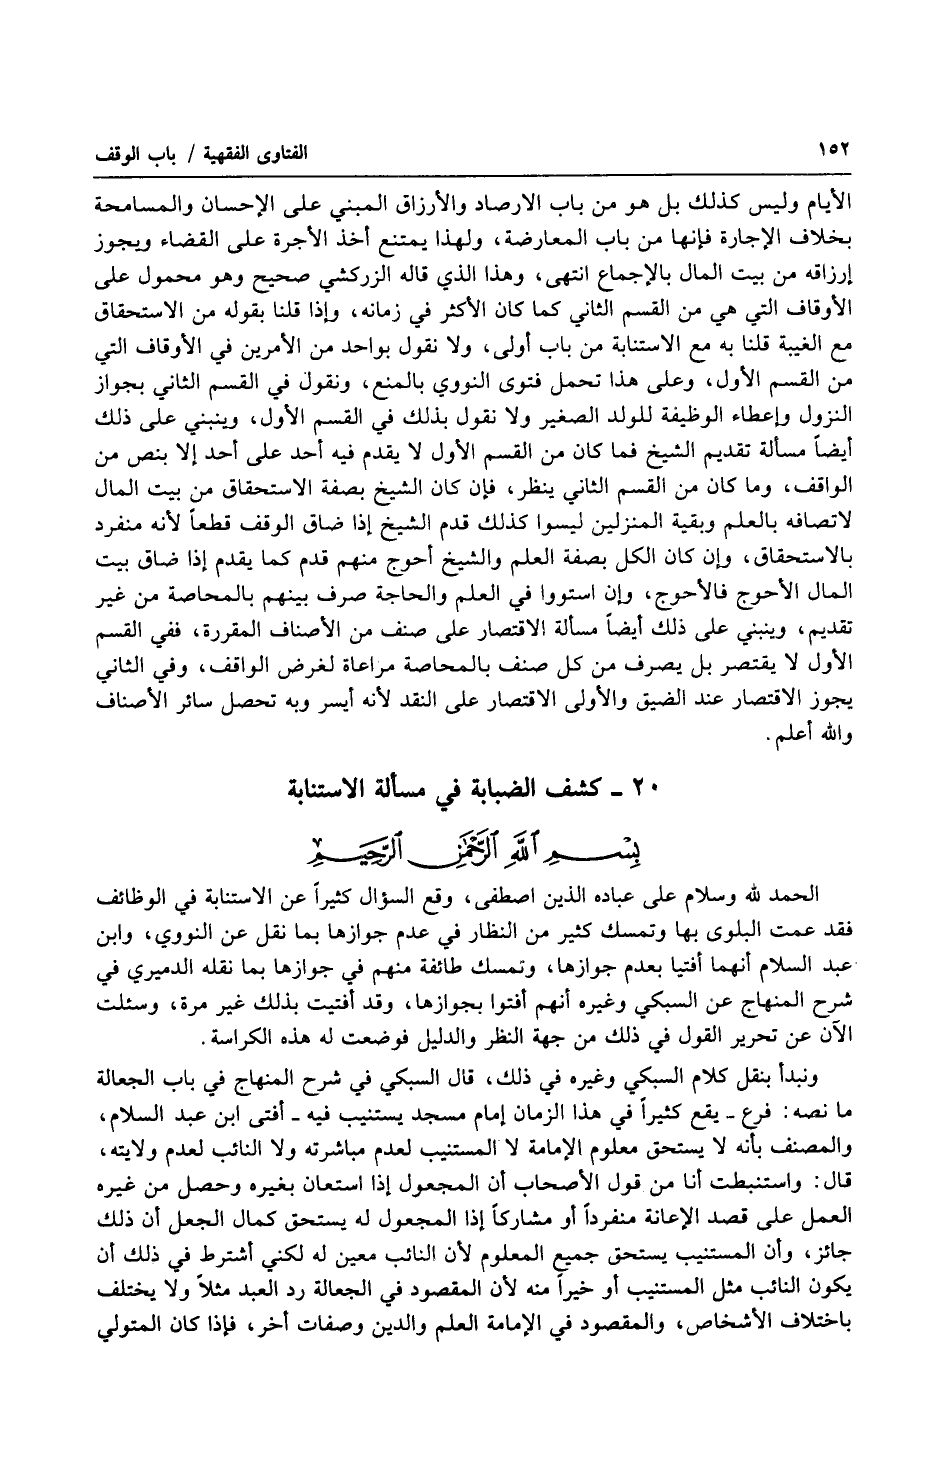 ١٥٢
الفتاوى الفقهية / باب الوقف
الأيام وليس كذلك بل هو من باب الارصاد والأرزاق المبني على الإحسان والمسامحة
بخلاف الإجارة فإنها من باب المعارضة، ولهذا يمتنع أخذ الأجرة على القضاء ويجوز
إرزاقه من بيت المال بالإجماع انتهى، وهذا الذي قاله الزركشي صحيح وهو محمول على
الأوقاف التي هي من القسم الثاني كما كان الأكثر في زمانه، وإذا قلنا بقوله من الاستحقاق
مع الغيبة قلنا به مع الاستنابة من باب أولى، ولا نقول بواحد من الأمرين في الأوقاف التي
من القسم الأول، وعلى هذا تحمل فتوى النووي بالمنع، ونقول في القسم الثاني بجواز
النزول وإعطاء الوظيفة للولد الصغير ولا نقول بذلك في القسم الأول، وينبني على ذلك
أيضاً مسألة تقديم الشيخ فما كان من القسم الأول لا يقدم فيه أحد على أحد إلا بنص من
الواقف، وما كان من القسم الثاني ينظر، فإن كان الشيخ بصفة الاستحقاق من بيت المال
لاتصافه بالعلم وبقية المنزلين ليسوا كذلك قدم الشيخ إذا ضاق الوقف قطعاً لأنه منفرد
بالاستحقاق، وإن كان الكل بصفة العلم والشيخ أحوج منهم قدم كما يقدم إذا ضاق بيت
المال الأحوج فالأحوج، وإن استووا في العلم والحاجة صرف بينهم بالمحاصة من غير
تقديم، وينبني على ذلك أيضاً مسألة الاقتصار على صنف من الأصناف المقررة، ففي القسم
الأول لا يقتصر بل يصرف من كل صنف بالمحاصة مراعاة لغرض الواقف، وفي الثاني
يجوز الاقتصار عند الضيق والأولى الاقتصار على النقد لأنه أيسر وبه تحصل سائر الأصناف
والله أعلم.
٢٠ - كشف الضبابة في مسألة الاستنابة
بسم الله الرحمن الرحيم
الحمد لله وسلام على عباده الذين اصطفى، وقع السؤال كثيراً عن الاستنابة في الوظائف
فقد عمت البلوى بها وتمسك كثير من النظار في عدم جوازها بما نقل عن النووي، وابن
عبد السلام أنهما أفتيا بعدم جوازها، وتمسك طائفة منهم في جوازها بما نقله الدميري في
شرح المنهاج عن السبكي وغيره أنهم أفتوا بجوازها، وقد أفتيت بذلك غير مرة، وسئلت
الآن عن تحرير القول في ذلك من جهة النظر والدليل فوضعت له هذه الكراسة.
ونبدأ بنقل كلام السبكي وغيره في ذلك، قال السبكي في شرح المنهاج في باب الجعالة
ما نصه: فرع - يقع كثيراً في هذا الزمان إمام مسجد يستنيب فيه - أفتى ابن عبد السلام،
والمصنف بأنه لا يستحق معلوم الإمامة لا المستنيب لعدم مباشرته ولا النائب لعدم ولايته،
قال: واستنبطت أنا من قول الأصحاب أن المجعول إذا استعان بغيره وحصل من غيره
العمل على قصد الإعانة منفرداً أو مشاركاً إذا المجعول له يستحق كمال الجعل أن ذلك
جائز، وأن المستنيب يستحق جميع المعلوم لأن النائب معين له لكني أشترط في ذلك أن
يكون النائب مثل المستنيب أو خيراً منه لأن المقصود في الجعالة رد العبد مثلاً ولا يختلف
باختلاف الأشخاص، والمقصود في الإمامة العلم والدين وصفات أخر، فإذا كان المتولي